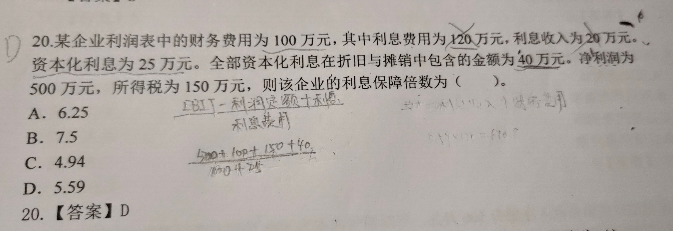 D
20.某企业利润表中的财务费用为100万元，其中利息费用为120万元，利息收入为20万元。
资本化利息为25万元。全部资本化利息在折旧与摊销中包含的金额为40万元。净利润为
500万元，所得税为150万元，则该企业的利息保障倍数为（ ）。
A．6.25
B．7.5
C．4.94
D．5.59
EBIT-利润总额+利息
利息费用
500+100+150+40
+25
20.【答案】D